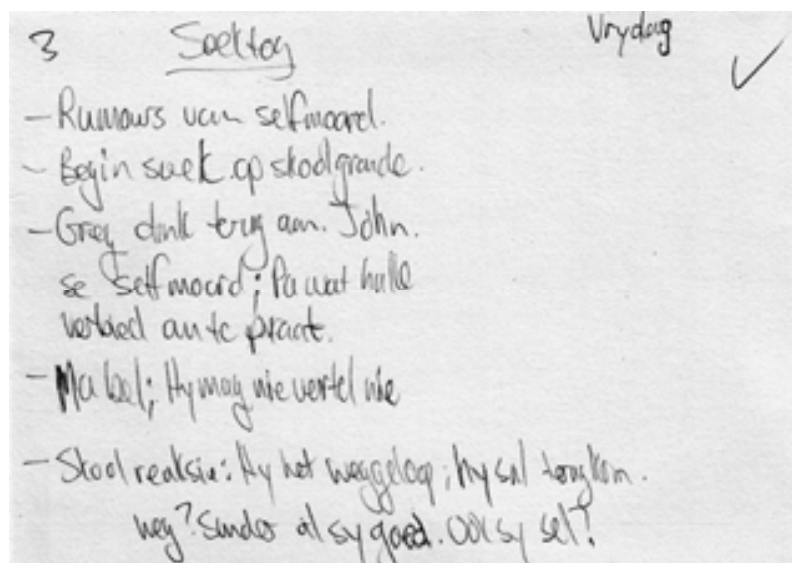 3 Soektog Vrydag
- Rumours van selfmoord.
- Begin soek op skoolgronde.
- Greg dink terug aan John
se selfmoord; Pa wat hulle
verbied om te praat.
- Ma bel; Hy mag nie vertel nie
- Skool reaksie: Hy het weggeloop; hy sal terugkom.
hey? Sonder al sy goed. Ook sy sel?